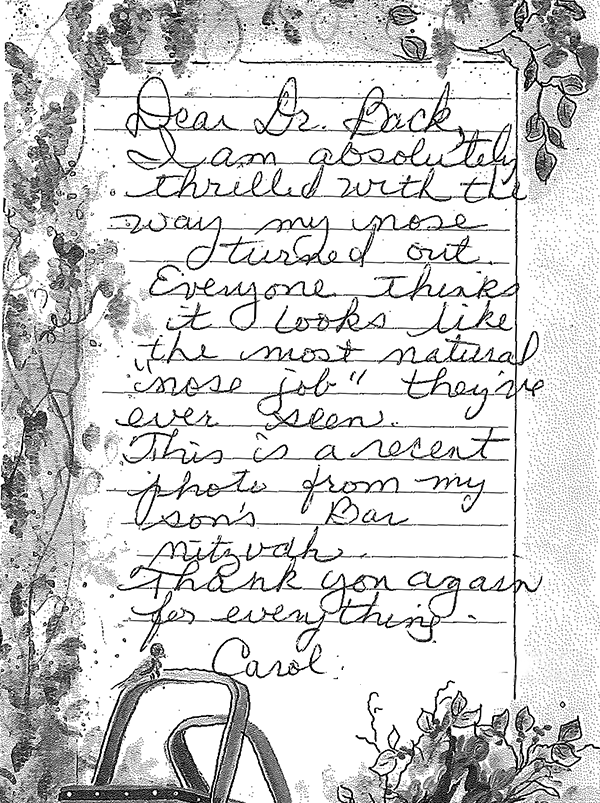 Dear Dr. Back,
I am absolutely
thrilled with the
way my nose
turned out.
Everyone thinks
it looks like
the most natural
"nose job" they've
ever seen.
This is a recent
photo from my
son's Bar
mitzvah.
Thank you again
for everything.
Carol